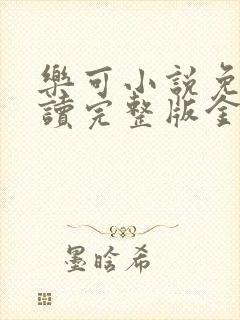 樂可小說免
讀完整版全
墨晗希